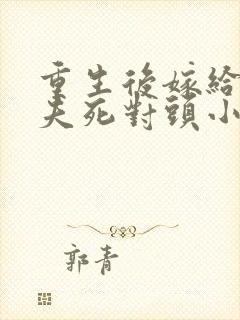 重生後嫁給
夫死對頭小
郭青